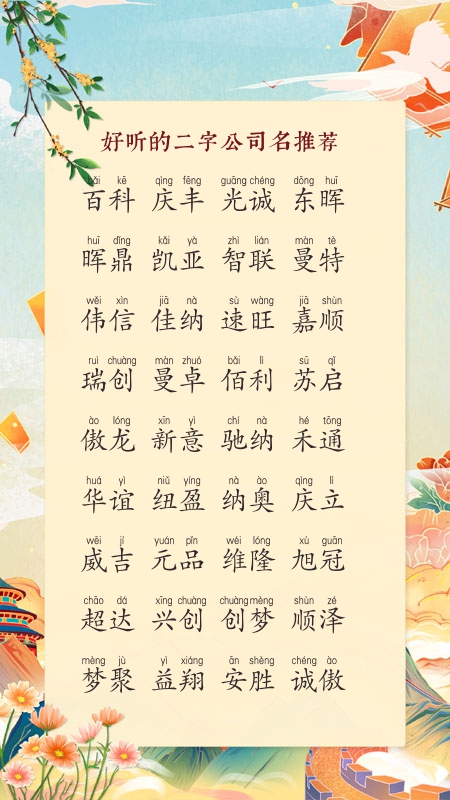 好听的二字公司名推荐
bǎi kē qìng fēng guāng chéng dōng huī
百科 庆丰 光诚 东晖
huī dǐng kǎi yà zhì lián màn tè
晖鼎 凯亚 智联 曼特
wěi xìn jiā nà sù wàng jiā shùn
伟信 佳纳 速旺 嘉顺
ruì chuàng màn zhuó bǎi lì sū qǐ
瑞创 曼卓 佰利 苏启
ào lóng xīn yì chí nà hé tōng
傲龙 新意 驰纳 禾通
huá yì niǔ yíng nà ào qìng lì
华谊 纽盈 纳奥 庆立
wēi jí yuán pǐn wéi lóng xù guān
威吉 元品 维隆 旭冠
chāo dá xīng chuàng chuàng mèng shùn zé
超达 兴创 创梦 顺泽
mèng jù yì xiáng ān shèng chéng ào
梦聚 益翔 安胜 诚傲